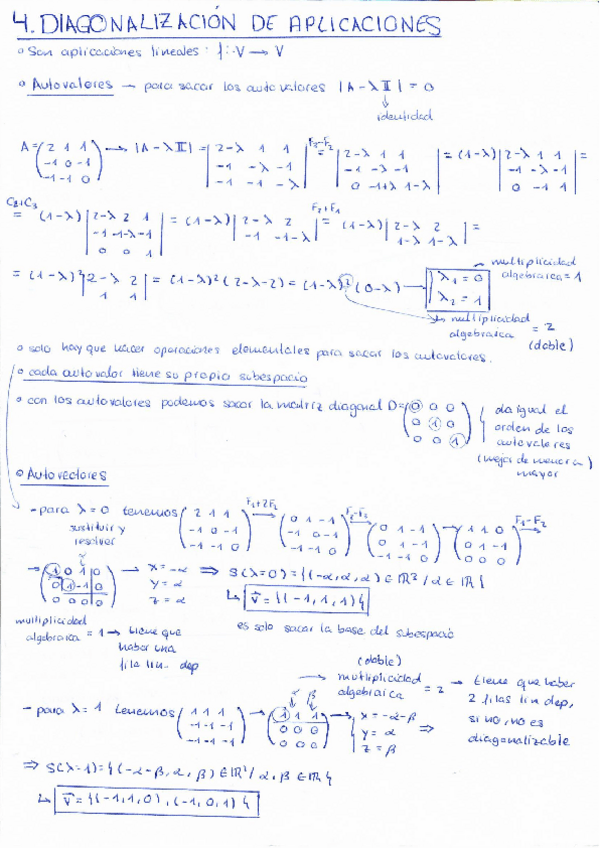 4. DIAGONALIZACIÓN DE APLICACIONES
• Son aplicaciones lineales: f: V → V
• Autovalores → para sacar los autovalores |A - λ𝕀| = 0
↓
identidad
A = (2 1 1 / -1 0 -1 / -1 -1 0) → |A - λ𝕀| = |2-λ 1 1 / -1 -λ -1 / -1 -1 -λ| F3-F2 = |2-λ 1 1 / -1 -λ -1 / 0 -1+λ 1-λ| = (1-λ) |2-λ 1 1 / -1 -λ -1 / 0 -1 1| =
C2+C3 = (1-λ) |2-λ 2 1 / -1 -1-λ -1 / 0 0 1| = (1-λ) |2-λ 2 / -1 -1-λ| F2+F1 = (1-λ) |2-λ 2 / 1-λ 1-λ| =
= (1-λ)² |2-λ 2 / 1 1| = (1-λ)² (2-λ-2) = (1-λ)² (0-λ) → λ1 = 0 λ2 = 1
multiplicidad algebraica = 1
multiplicidad algebraica = 2 (doble)
• solo hay que hacer operaciones elementales para sacar los autovalores.
• cada autovalor tiene su propio subespacio
• con los autovalores podemos sacar la matriz diagonal D = (0 0 0 / 0 1 0 / 0 0 1)
da igual el
orden de los
autovalores
(mejor de menor a
mayor)
• Autovectores
- para λ=0 tenemos (2 1 1 / -1 0 -1 / -1 -1 0) F1+2F2 → (0 1 -1 / -1 0 -1 / -1 -1 0) → (0 1 -1 / 0 1 -1 / -1 -1 0) → (1 1 0 / 0 1 -1 / 0 0 0) F1-F2 →
sustituir y
resolver
α
→ (1 0 1 0 / 0 1 -1 0 / 0 0 0 0) → x = -α y = α z = α ⇒ S(λ=0) = {(-α, α, α) ∈ ℝ³ / α ∈ ℝ}
↳ v⃗ = {(-1, 1, 1)}
multiplicidad
algebraica = 1 → tiene que
haber una
fila lin. dep
es solo sacar la base del subespacio
(doble)
→ multiplicidad
algebraica = 2 → tiene que haber
2 filas lin dep,
si no, no es
diagonalizable
α β
- para λ=1 tenemos (1 1 1 / -1 -1 -1 / -1 -1 -1) → (1 1 1 / 0 0 0 / 0 0 0) → x = -α-β y = α z = β ⇒
⇒ S(λ=1) = {(-α-β, α, β) ∈ ℝ³ / α, β ∈ ℝ}
↳ v⃗ = {(-1, 1, 0), (-1, 0, 1)}